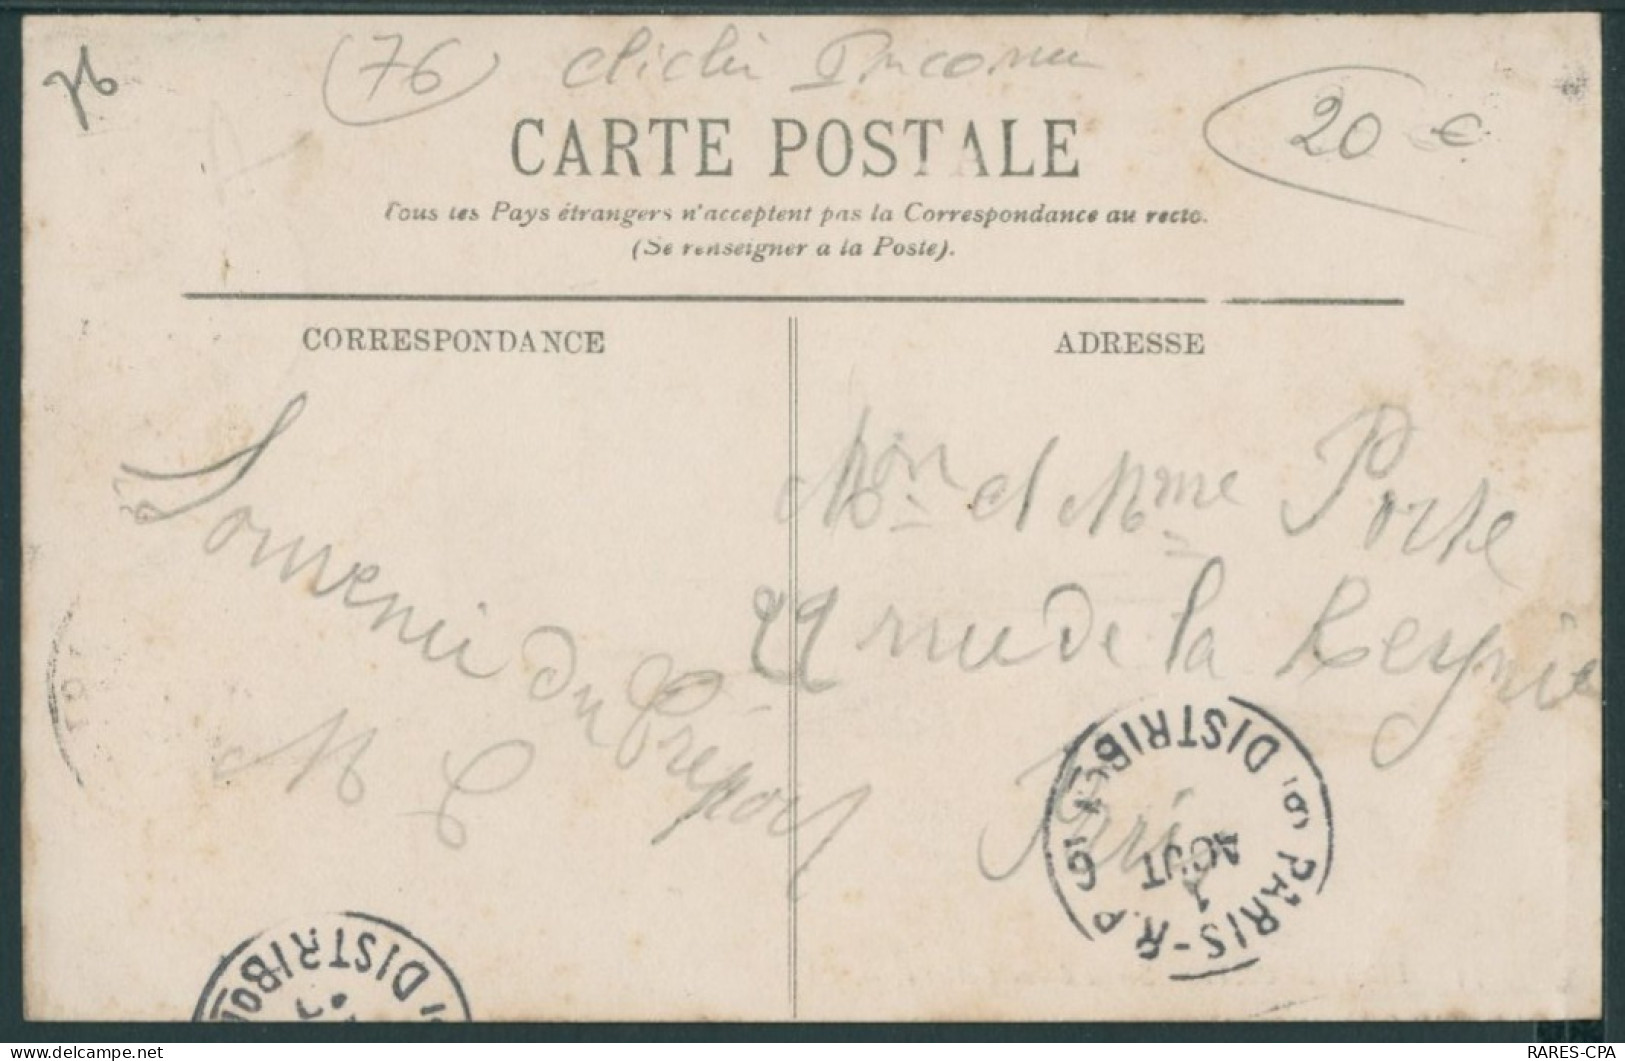 76
(76) cliché Inconnu
20 €
CARTE POSTALE
Tous les Pays étrangers n'acceptent pas la Correspondance au recto.
(Se renseigner a la Poste).
CORRESPONDANCE
Souvenir du Tréport
M C
ADRESSE
Mon et Mme Porte
29 rue de la Reynie
Paris
PARIS-R.P. DISTRIB
AOUT
DISTRIB
RARES-CPA